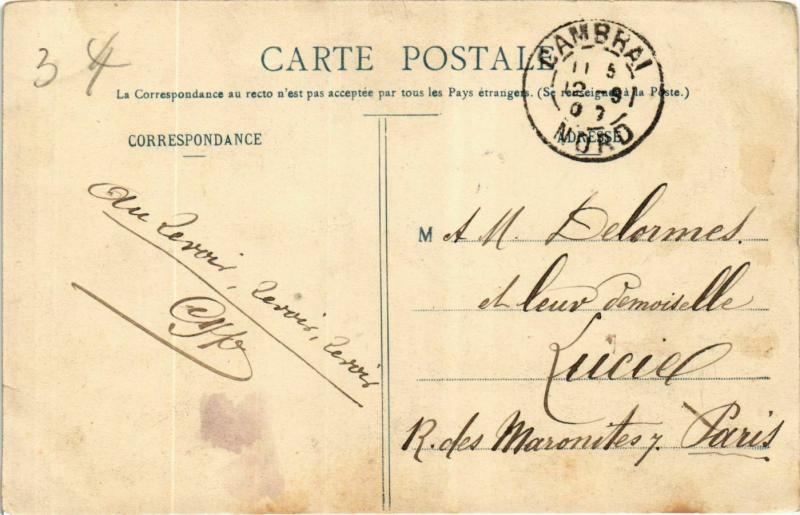 3 4
CARTE POSTALE
La Correspondance au recto n'est pas acceptée par tous les Pays étrangers. (Se renseigner à la Poste.)
CAMBRAI
11 5
12 - 9
07
NORD
CORRESPONDANCE
ADRESSE
au revoir, revoir, revoir
M A M. Delormes.
et leur demoiselle
Lucie
R. des Maronites 7. Paris